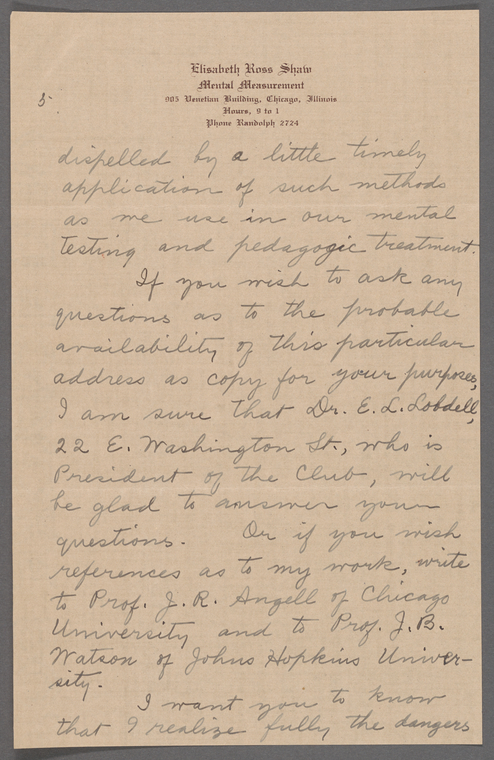 Elisabeth Ross Shaw
Mental Measurement
905 Venetian Building, Chicago, Illinois
Hours, 9 to 1
Phone Randolph 2724
5.
dispelled by a little timely
application of such methods
as we use in our mental
testing and pedagogic treatment.
If you wish to ask any
questions as to the probable
availability of this particular
address as copy for your purposes,
I am sure that Dr. E. L. Lobdell,
22 E. Washington St., who is
President of the Club, will
be glad to answer your
questions. Or if you wish
references as to my work, write
to Prof. J. R. Angell of Chicago
University and to Prof. J. B.
Watson of Johns Hopkins Univer-
sity.
I want you to know
that I realize fully the dangers